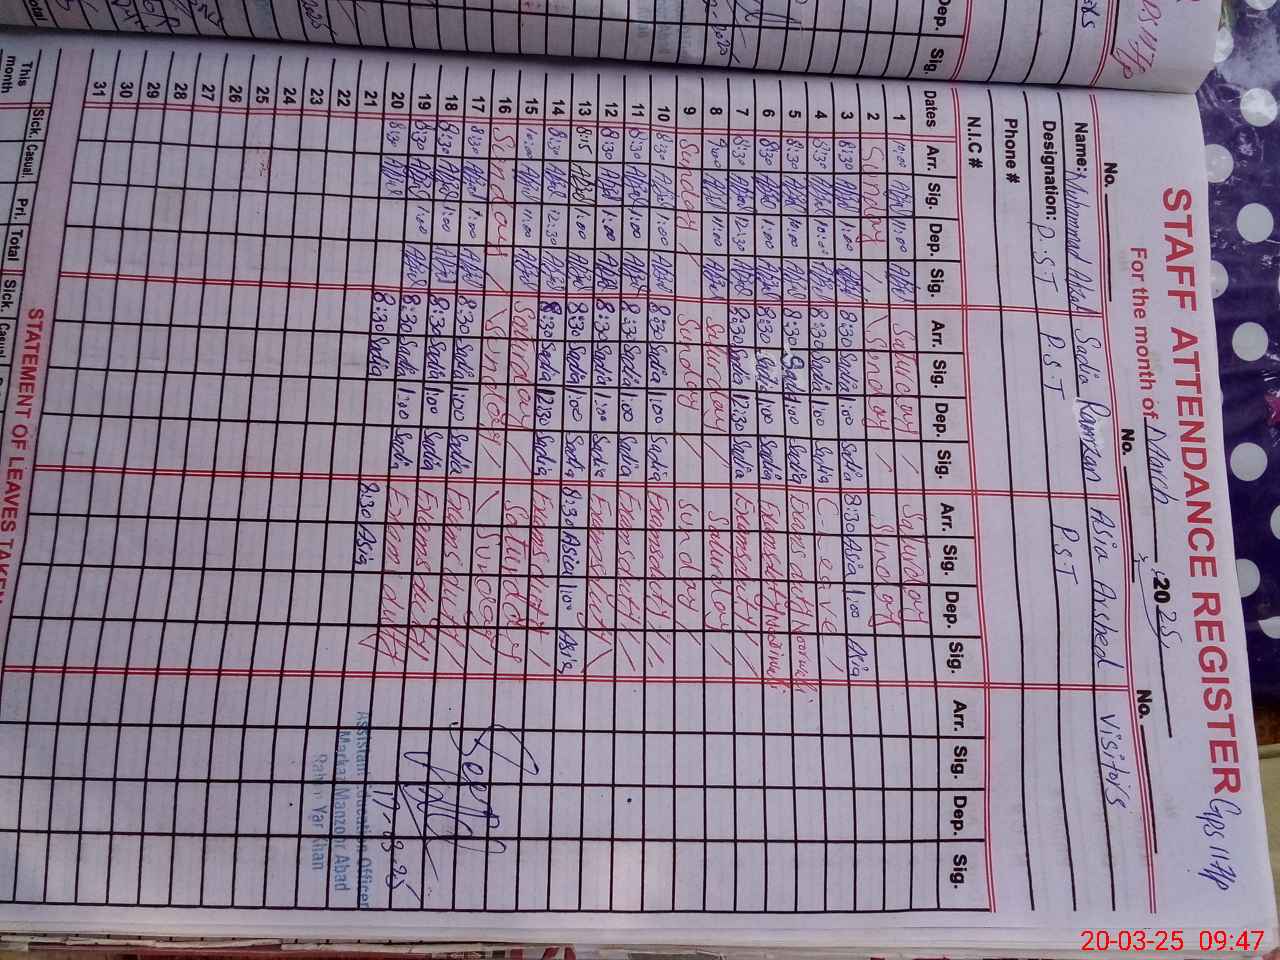 STAFF ATTENDANCE REGISTER GPS 117/P
For the month of March 2025
No. No. No.
Name: Muhammad Afzal Sadia Ramzan Asia Arshed visitors
Designation: P.S.T P.S.T P.S.T
Phone #
N.I.C #
Dates Arr. Sig. Dep. Sig. Arr. Sig. Dep. Sig. Arr. Sig. Dep. Sig. Arr. Sig. Dep. Sig.
1 10:00 Afzal 11:00 Afzal Saturday Saturday
2 Sunday Sunday Sunday
3 8:30 Afzal 1:00 Afzal 8:30 Sadia 1:00 Sadia 8:30 Asia 1:00 Asia
4 8:30 Afzal 10:00 Afzal 8:30 Sadia 1:00 Sadia C-leave
5 8:30 Afzal 10:00 Afzal 8:30 Sadia 1:00 Sadia
6 8:30 Afzal 1:00 Afzal 8:30 Sadia 1:00 Sadia
7 8:30 Afzal 12:30 Afzal 8:30 Sadia 12:30 Sadia Exams duty
8 9:00 Afzal 11:00 Afzal Saturday Saturday
9 Sunday Sunday Sunday
10 8:30 Afzal 1:00 Afzal 8:30 Sadia 1:00 Sadia Exams duty
11 8:30 Afzal 1:00 Afzal 8:30 Sadia 1:00 Sadia Exams duty
12 8:30 Afzal 1:00 Afzal 8:30 Sadia 1:00 Sadia Exams duty
13 8:15 Afzal 1:00 Afzal 8:30 Sadia 1:00 Sadia 8:30 Asia 1:00 Asia
14 8:30 Afzal 12:30 Afzal 8:30 Sadia 12:30 Sadia Exams duty
15 10:00 Afzal 11:00 Afzal Saturday Saturday
16 Sunday Sunday Sunday
17 8:30 Afzal 1:00 Afzal 8:30 Sadia 1:00 Sadia Exams duty
18 8:30 Afzal 1:00 Afzal 8:30 Sadia 1:00 Sadia Exams duty
19 8:30 Afzal 1:00 Afzal 8:30 Sadia 1:00 Sadia Exams duty
20 8:30 Afzal 8:30 Sadia Exam duty
21 8:30 Asia
22
23
24
25
26
27
28
29
30
31
17-03-25
Assistant Education Officer
Markaz Manzoor Abad
Rahim Yar Khan
STATEMENT OF LEAVES TAKEN
This month Sick. Casual. Pri. Total Sick. Casual
Dep. Sig.
20-03-25 09:47